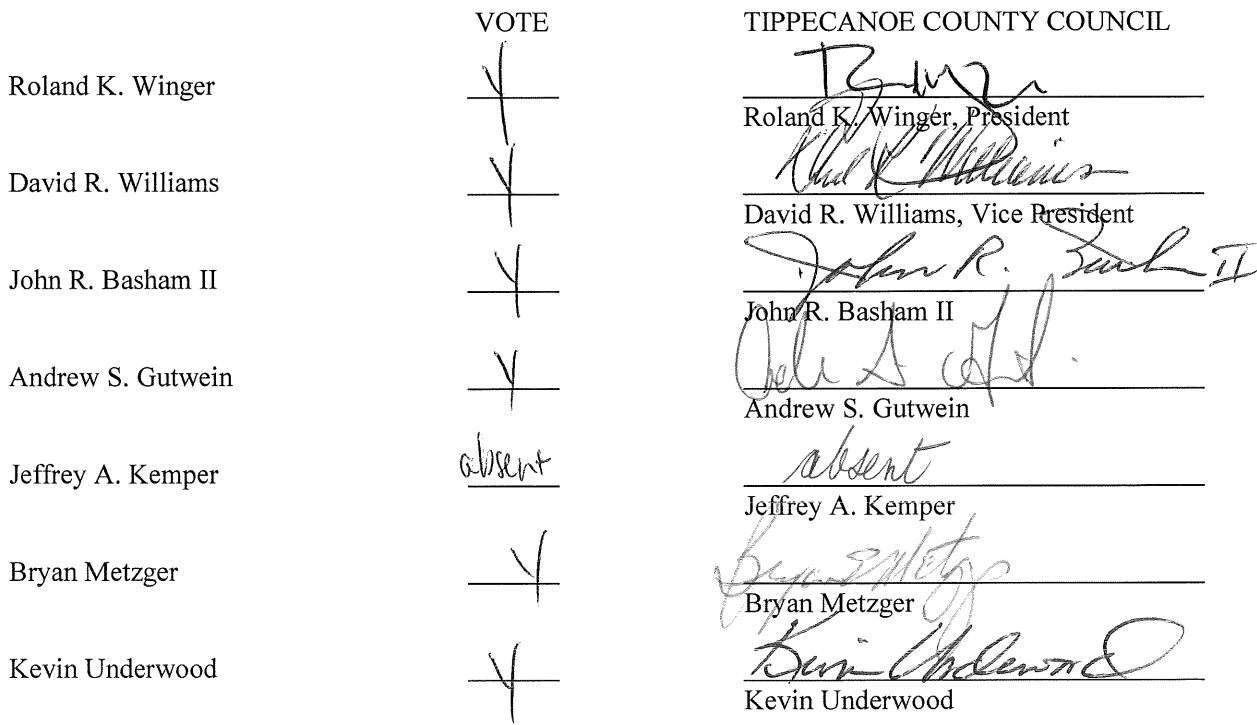 VOTE TIPPECANOE COUNTY COUNCIL
Roland K. Winger Y
Roland K. Winger, President
David R. Williams Y David R Williams
David R. Williams, Vice President
John R. Basham II Y John R. Basham II
John R. Basham II
Andrew S. Gutwein Y
Andrew S. Gutwein
Jeffrey A. Kemper absent absent
Jeffrey A. Kemper
Bryan Metzger Y Bryan E Metzger
Bryan Metzger
Kevin Underwood Y Kevin Underwood
Kevin Underwood